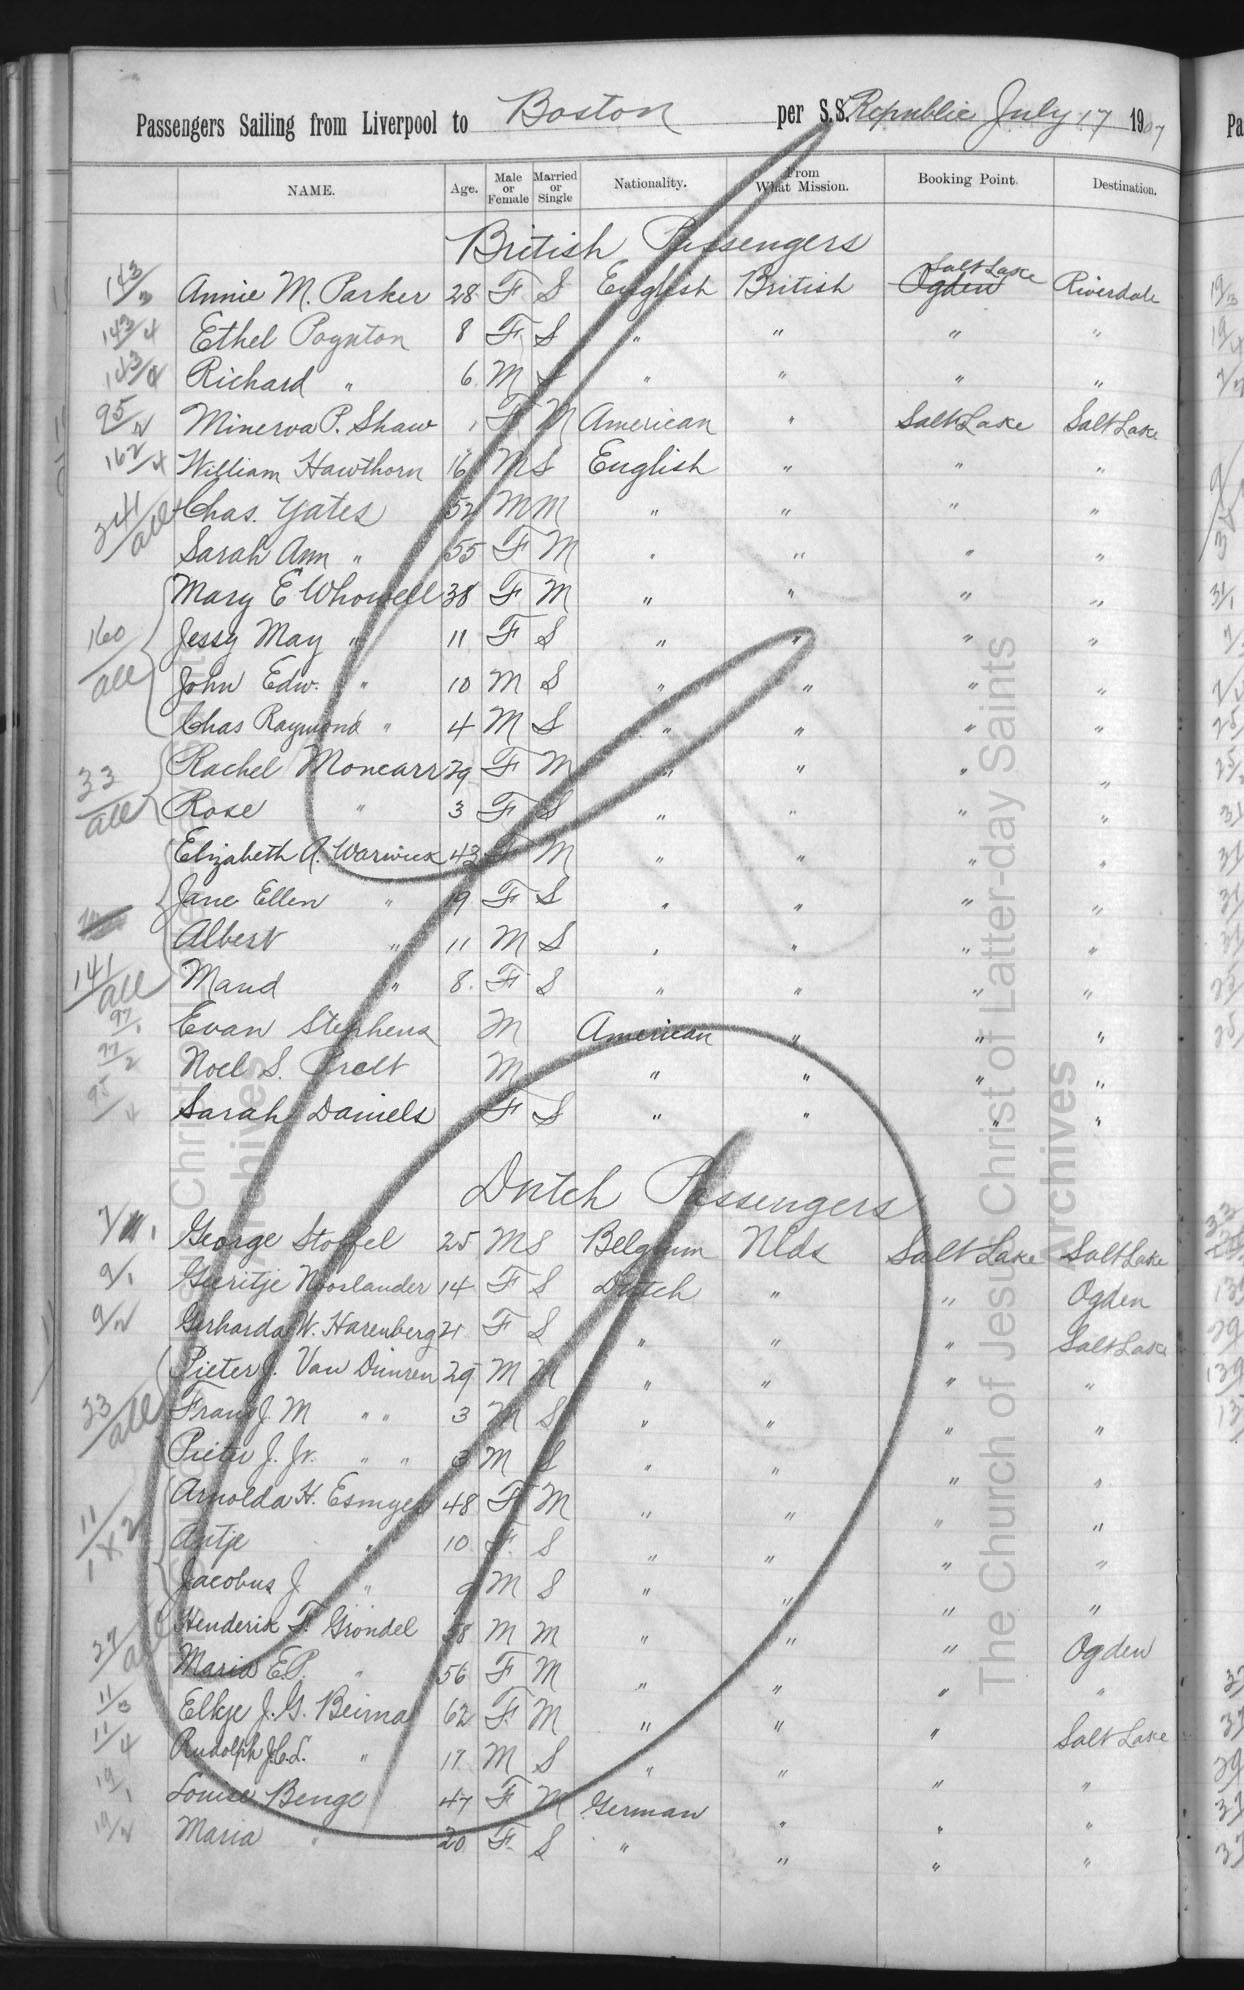 Passengers Sailing from Liverpool to Boston per S.S. Republic July 17 1907
NAME. Age. Male or Female Married or Single Nationality. From What Mission. Booking Point. Destination.
British Passengers
143/3 Annie M. Parker 28 F S English British Ogden Salt Lake Riverdale
143/4 Ethel Poynton 8 F S " " " "
143/2 Richard " 6 M S " " " "
95/2 Minerva P. Shaw F M American " Salt Lake Salt Lake
162/4 William Hawthorn 16 M S English " " "
241/all Chas. Yates 52 M M " " " "
Sarah Ann " 55 F M " " " "
Mary E Whowell 38 F M " " " "
160/all Jessy May " 11 F S " " " "
John Edw. " 10 M S " " " "
Chas Raymond " 4 M S " " " "
33/all Rachel Moncarr 29 F M " " " "
Rose " 3 F S " " " "
Elizabeth A. Warwick 43 F M " " " "
Jane Ellen " 19 F S " " " "
Albert " 11 M S " " " "
141/all Maud " 8 F S " " " "
97/1 Evan Stephens M American " " "
97/2 Noel S. Pratt M " " " "
95/4 Sarah Daniels F S " " " "
Dutch Passengers
George Stoffel 25 M S Belgium Nlds Salt Lake Salt Lake
9/1 Gerritje Nooslander 14 F S Dutch " " Ogden
9/2 Gerharda W. Harenberg 21 F S " " " Salt Lake
Pieter J. Van Dunren 29 M M " " " "
33/all Franz J. M " " 3 M S " " " "
Pieter J. Jr. " " 3 M S " " " "
Arnolda H. Esmyer 48 F M " " " "
11/1X2 Antje " 10 F S " " " "
Jacobus J " 9 M S " " " "
27/all Henderik F. Gröndel 58 M M " " " Ogden
Maria E.P. " 56 F M " " " "
11/3 Elkje J. G. Beima 62 F M " " " Salt Lake
11/4 Rudolph J.C.L. " 17 M S " " " "
19/1 Louise Benge 47 F M German " " "
19/2 Maria " 20 F S " " " "
The Church of Jesus Christ of Latter-day Saints
Archives